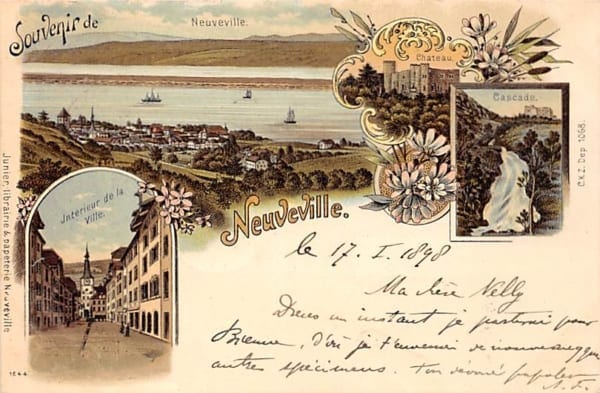 Souvenir de
Neuveville.
Chateau.
Cascade.
Jnterieur de la
Ville.
Neuveville.
Junier, librairie & papeterie Neuveville
C.K.Z. Dep. 1068.
1244
le 17. I. 1898
Ma chère Nelly
Dans un instant je partirai pour
Bienne, d'où je t'enverrai de nouveaux
autres spécimens. Ton dévoué
A. F.